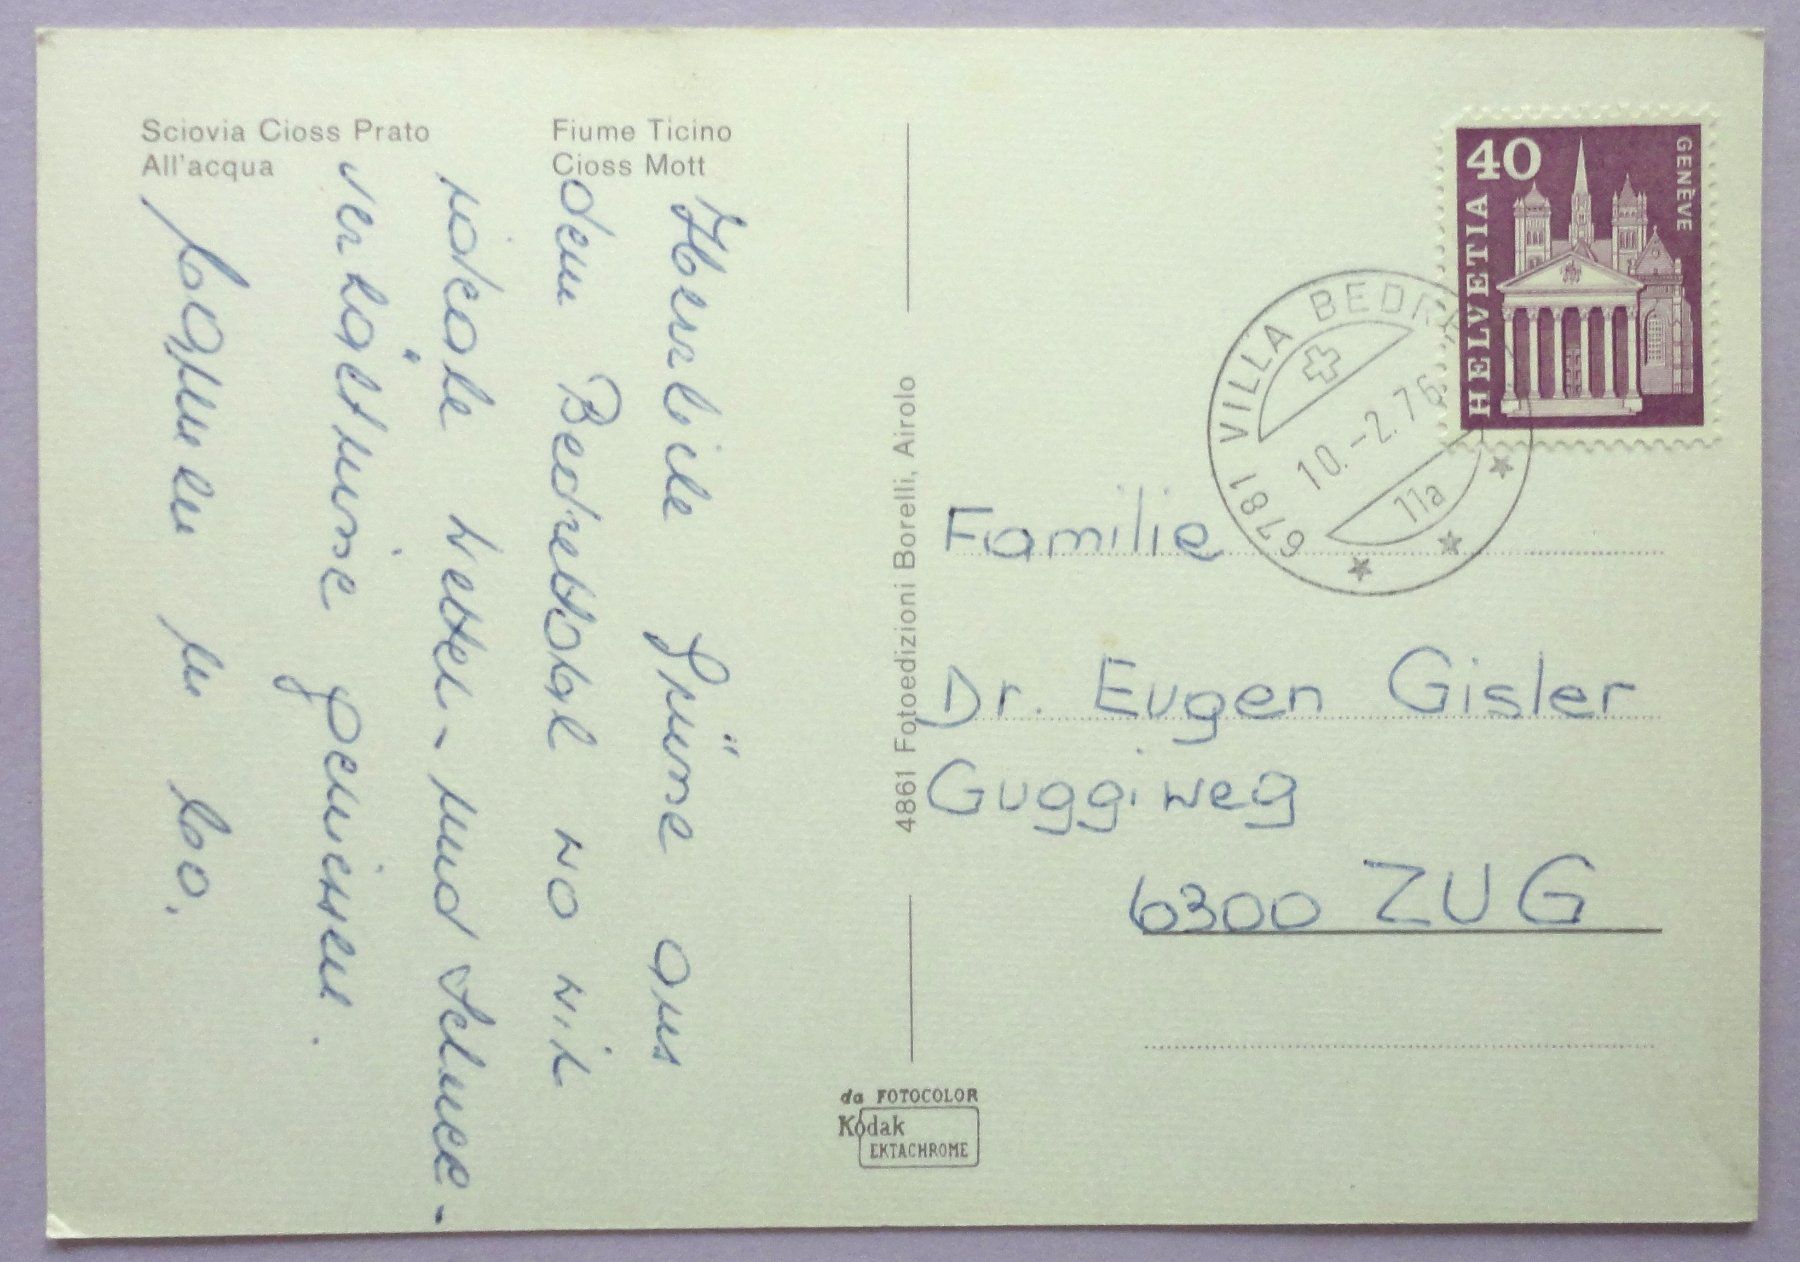 Sciovia Cioss Prato
All'acqua
Fiume Ticino
Cioss Mott
Herzliche Grüsse aus
dem Bedrettotal wo wir
ideale Wetter- und Schnee-
verhältnisse geniessen.
4861 Fotoedizioni Borelli, Airolo
da FOTOCOLOR
Kodak
EKTACHROME
HELVETIA
40
GENÈVE
6781 VILLA BEDR
10.-2.76
11a
Familie
Dr. Eugen Gisler
Guggiweg
6300 ZUG